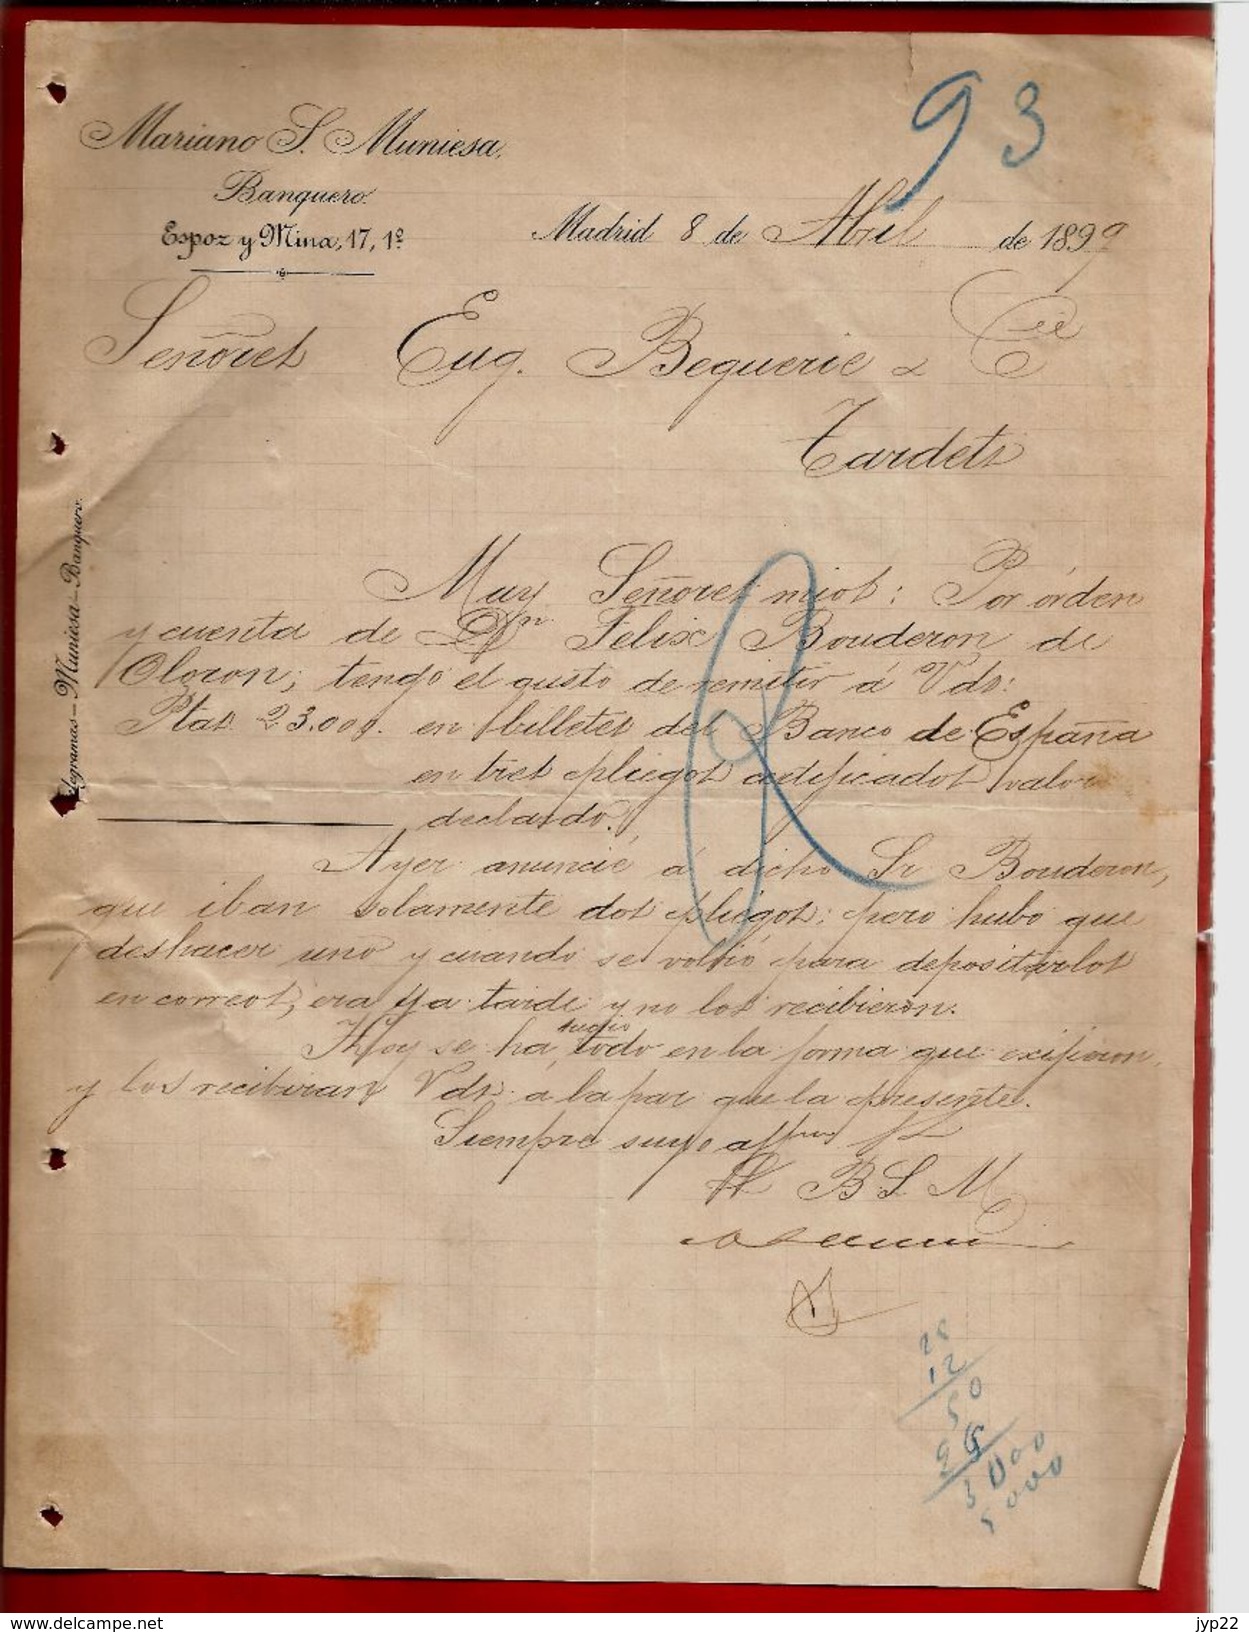 93
Mariano S. Muniesa,
Banquero.
Espoz y Mina, 17, 1º
Madrid 8 de Abril de 1899
Señores Eug. Beguerie & Cie
Tardets
Telegramas-Muniesa-Banquero.
Muy Señores mios: Por órden
y cuenta de Dn Felix Bouderon de
Oloron, tengo el gusto de remitir á Vds:
Ptas. 23.000. en billetes del Banco de España
en tres pliegos certificados valor
declarado.
Ayer anuncié á dicho Sr Bouderon,
que iban solamente dos pliegos: pero hubo que
deshacer uno y cuando se volvió para depositarlos
en correos, era ya tarde y no los recibieron.
Hoy se ha todo en la forma que exijieron,
y los recibiran Vds á la par que la presente.
Siempre suyo affmo
B S M
12
50
3000
5000
jyp22